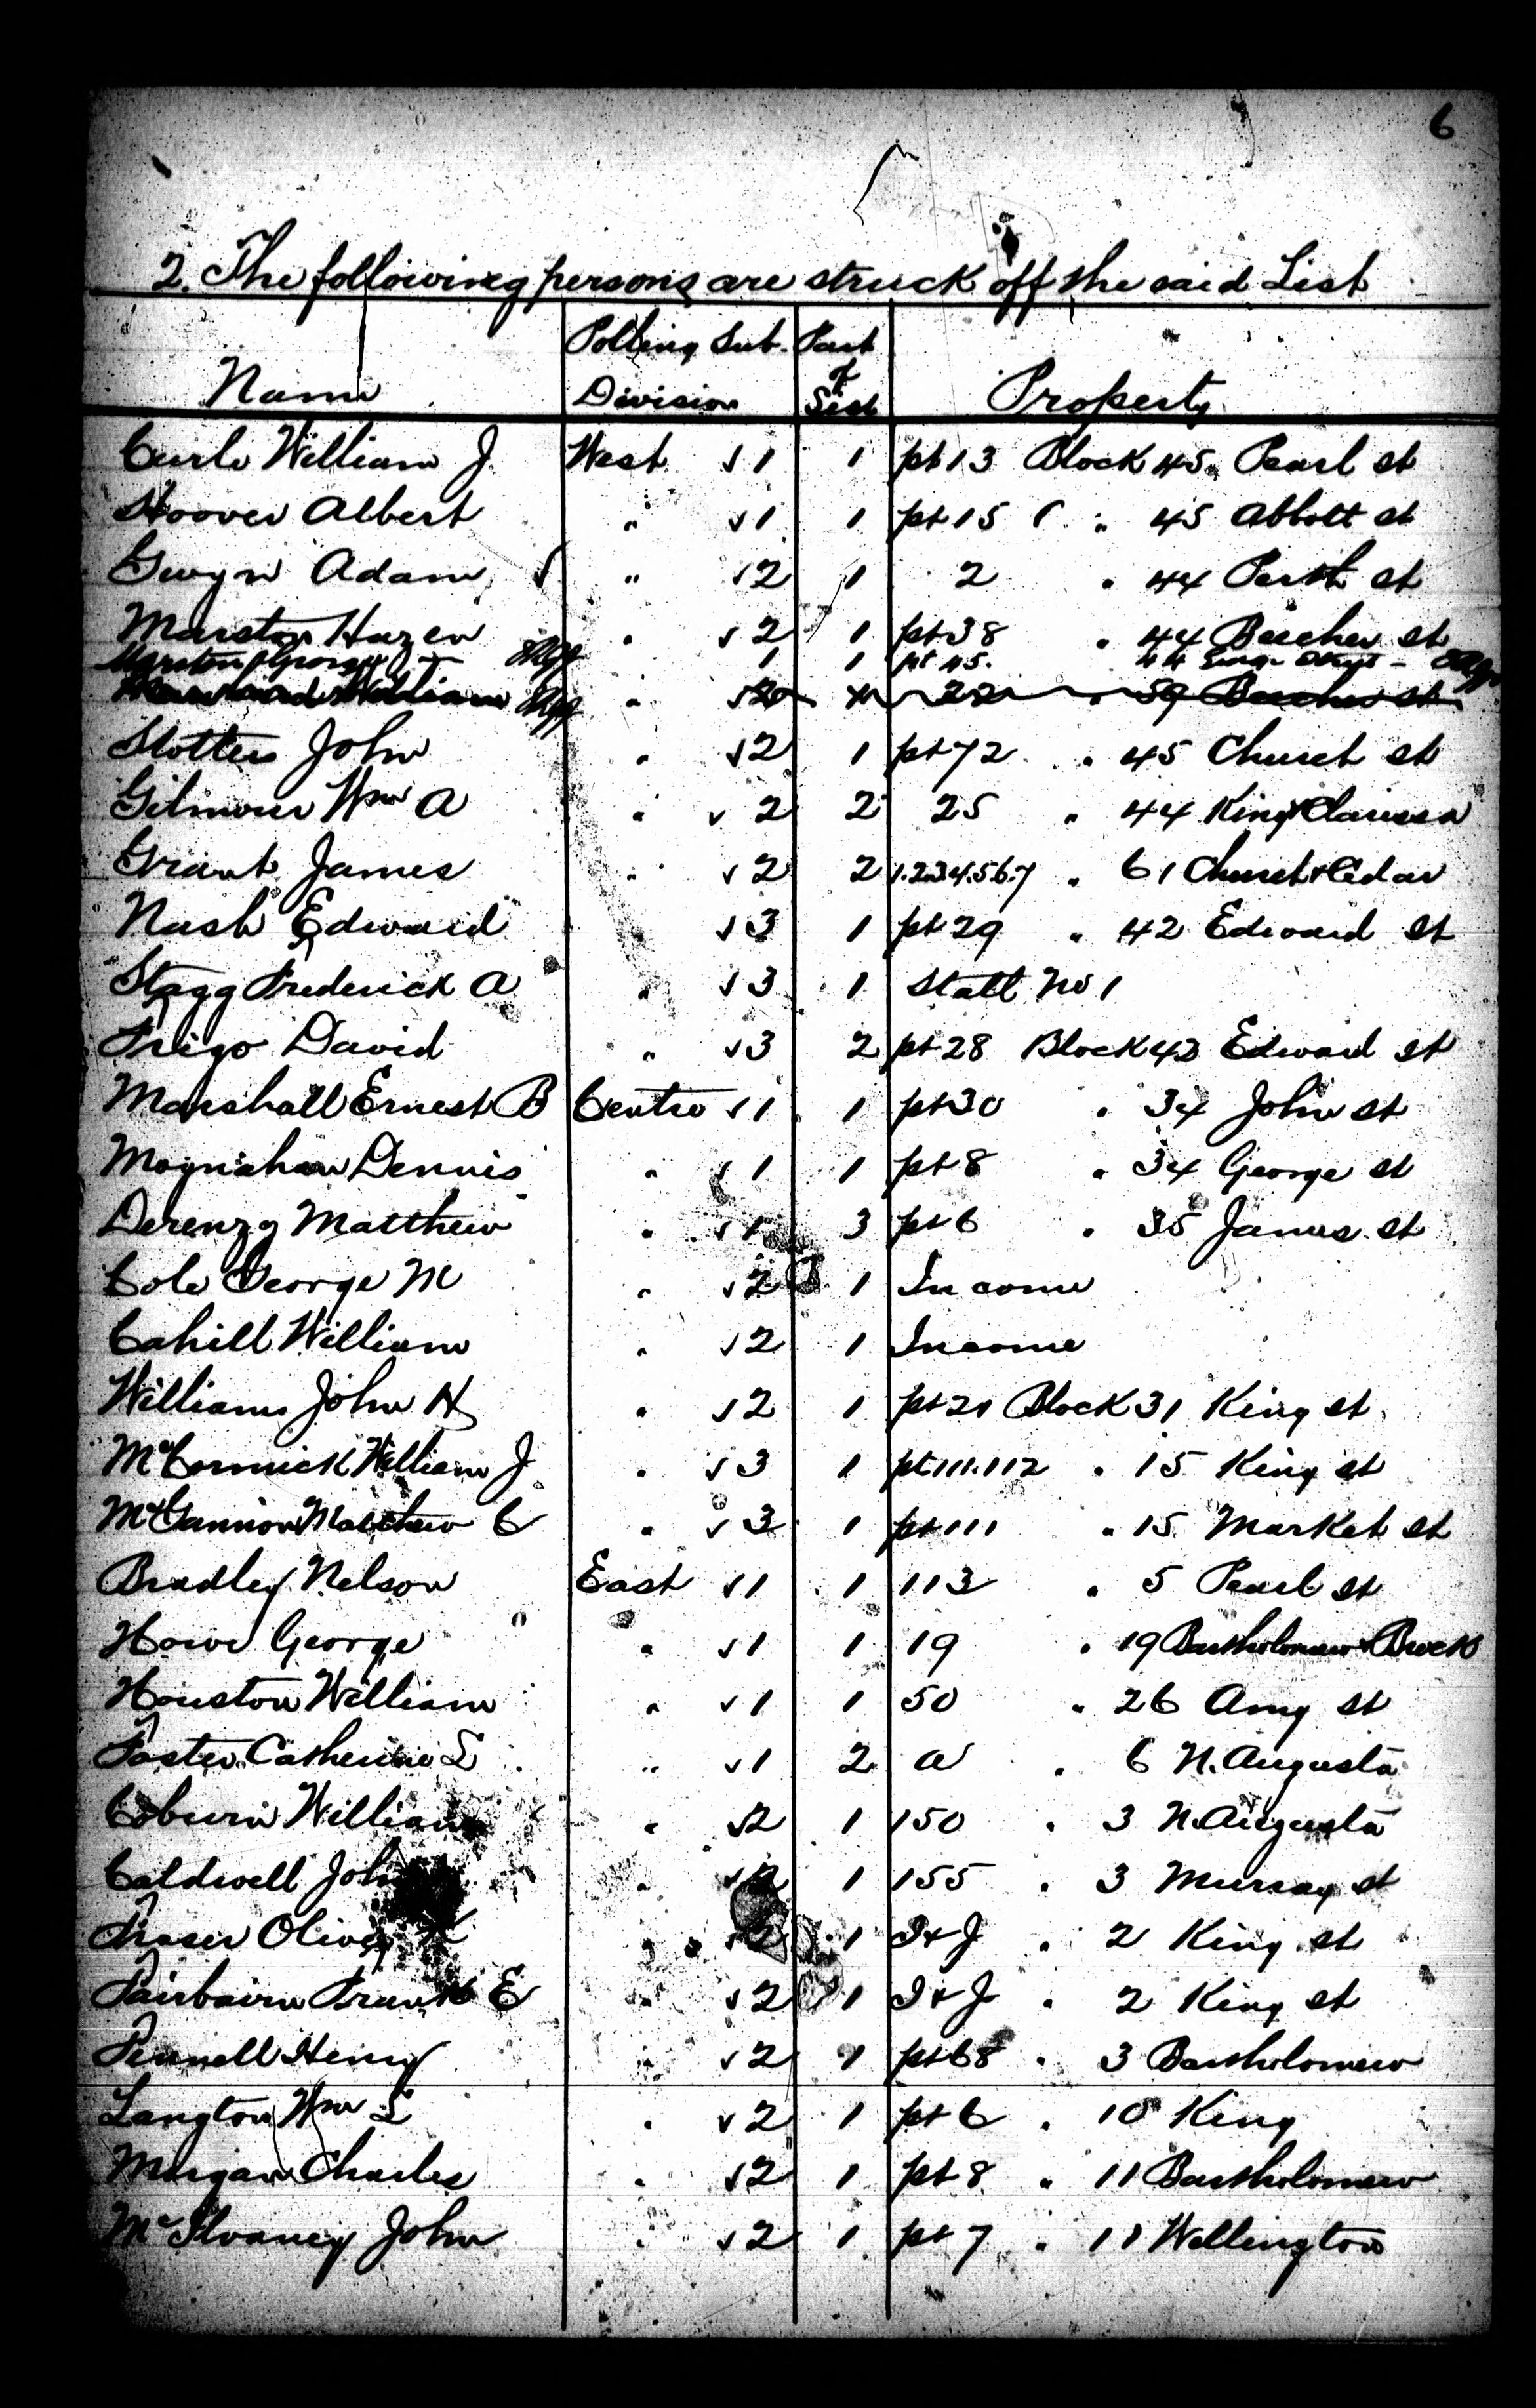 6
2. The following persons are struck off the said List
Name Polling Sub. Division Part of List Property
Curle William J. West √1 1 pt 13 Block 45 Pearl st
Hoover Albert " √1 1 pt 15 " 45 Abbott st
Gwyn Adam √ " √2 1 2 " 44 Perth st
Marston Hazen " √2 1 pt 38 " 44 Beecher st
Marston George 1 1 pt 45. 44
William " √2 22 " 59 Beecher st
Slotten John " √2 1 pt 72 " 45 Church st
Gilmour Wm A " √2 2 25 " 44 King & Clarissa
Grant James " √2 2 1.2.3.4.5.6.7 " 61 Church & Cedar
Nash Edward √3 1 pt 29 " 42 Edward st
Stagg Frederick A " √3 1 Stall No 1
Frigo David " √3 2 pt 28 Block 42 Edward st
Marshall Ernest B Centre √1 1 pt 30 " 34 John st
Moynahan Dennis " √1 1 pt 8 " 34 George st
Derenzy Matthew " √1 3 pt 6 " 35 James st
Cole George M " √2 1 Income
Cahill William " √2 1 Income
Williams John H " √2 1 pt 21 Block 31 King st
McCormick William J " √3 1 pt 111.112 " 15 King st
McGannon Matthew C " √3 1 pt 111 " 15 Market st
Bradley Nelson East √1 1 113 " 5 Pearl st
Howe George " √1 1 19 " 19 Bartholomew & Brock
Houston William " √1 1 50 " 26 Amy st
Foster Catherine L " √1 2 a " 6 N. Augusta
Coburn William " √2 1 150 " 3 N. Augusta
Caldwell John " √2 1 155 " 3 Murray st
Fraser Oliver K " √2 1 I & J " 2 King st
Fairbairn Frank E " √2 1 I & J " 2 King st
Pennell Henry " √2 1 pt 68 " 3 Bartholomew
Langton Wm L " √2 1 pt 6 " 10 King
Morgan Charles " √2 1 pt 8 " 11 Bartholomew
McIlvaney John " √2 1 pt 7 " 11 Wellington